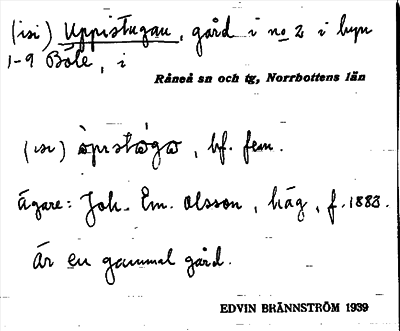 (isi) Uppistugan, gård i no 2 i byn
1-9 Böle, i
Råneå sn och tg, Norrbottens län
òpɩstòga, bf. fem.
Ägare: Joh. Em. Olsson, häg, f. 1883.
Är en gammal gård.
EDVIN BRÄNNSTRÖM 1939